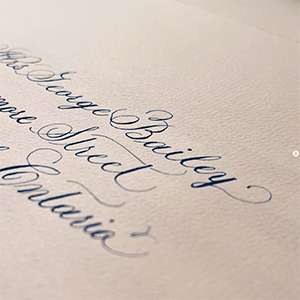 Mrs George Bailey
more Street
Entaria